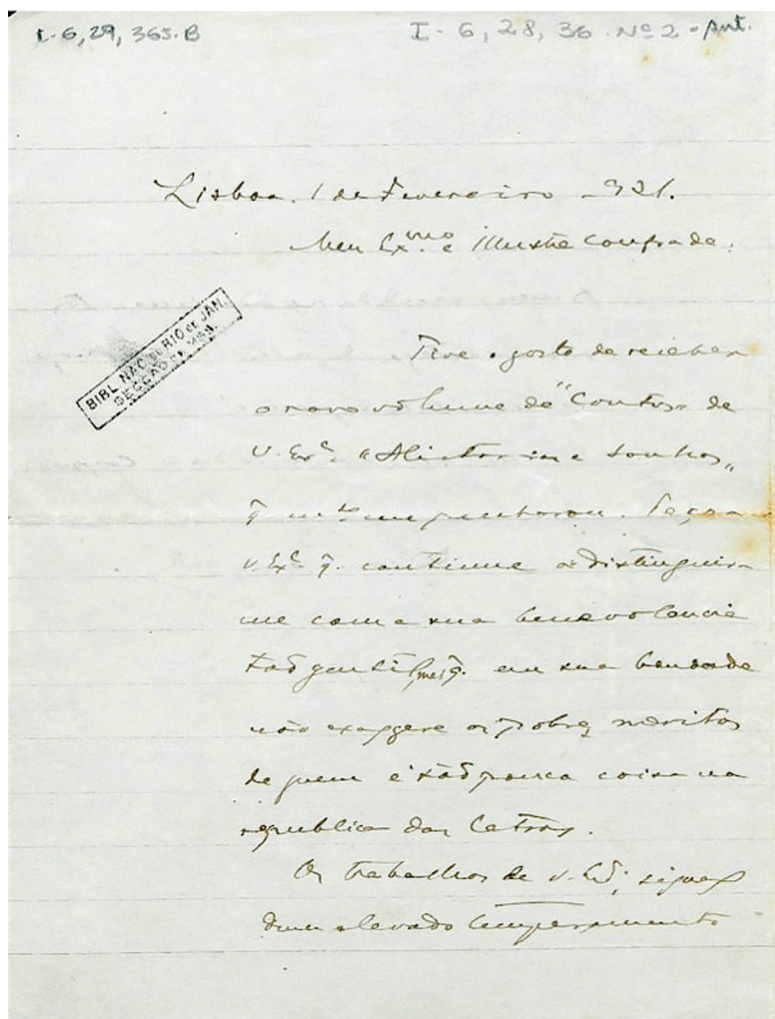 I-6,29,365.B
I-6,28,36 Nº 2 - Ant.
Lisboa. 1 de Fevereiro - 921.
Meu Ex.mo e illustre confrade.
BIBL. NAC. DE RIO DE JAN.
SECÇÃO DE MSS.
Tive o gosto de receber
o novo volume de "Contos" de
V. Exc.
q̃ m.to me penhorou. Peço a
V. Exc. q̃. continue a distinguir-
me com a sua benevolencia
tão gentil, mas q̃. em sua bondade
não exaggere os pobres meritos
de quem é tão pouca coisa na
republica das letras.
Os trabalhos de V. Exc.
dum elevado temperamento